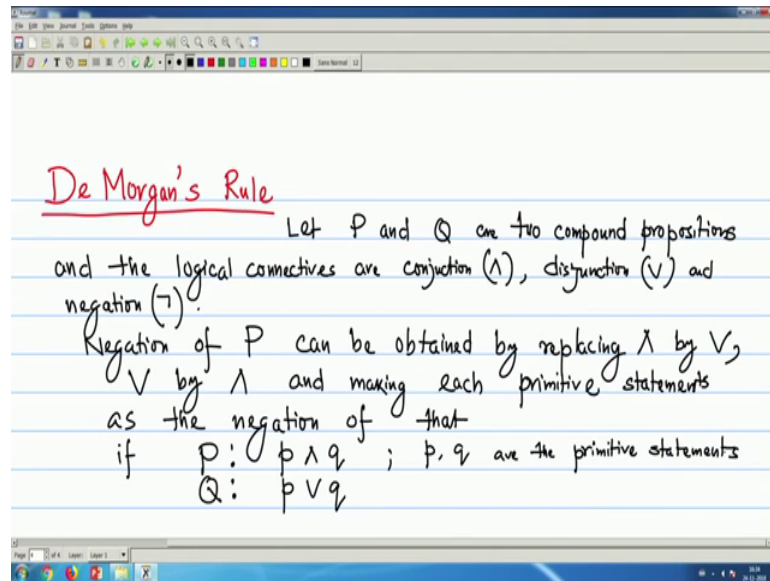 Journal
File Edit View Journal Tools Options Help
Sans Normal 12
De Morgan's Rule
Let P and Q are two compound propositions
and the logical connectives are conjuction (∧), disjunction (∨) and
negation (¬).
Negation of P can be obtained by replacing ∧ by ∨,
∨ by ∧ and making each primitive statements
as the negation of that
if P: p ∧ q ; p, q are the primitive statements
Q: p ∨ q
Page 4 of 4 Layer: Layer 1
16:36